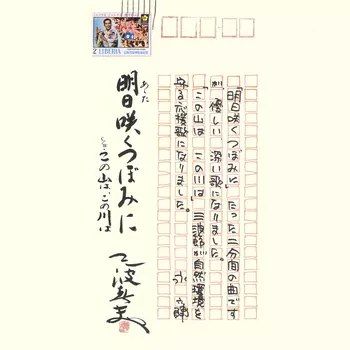 「明日咲くつぼみに」たった二分間の曲です
が優しい 深い歌になりました。
「この山は この川は」三波節が自然環境を
守る応援歌になりました。
永 六輔
あした
明日咲くつぼみに
この山は、この川は
三波春夫
2 LIBERIA